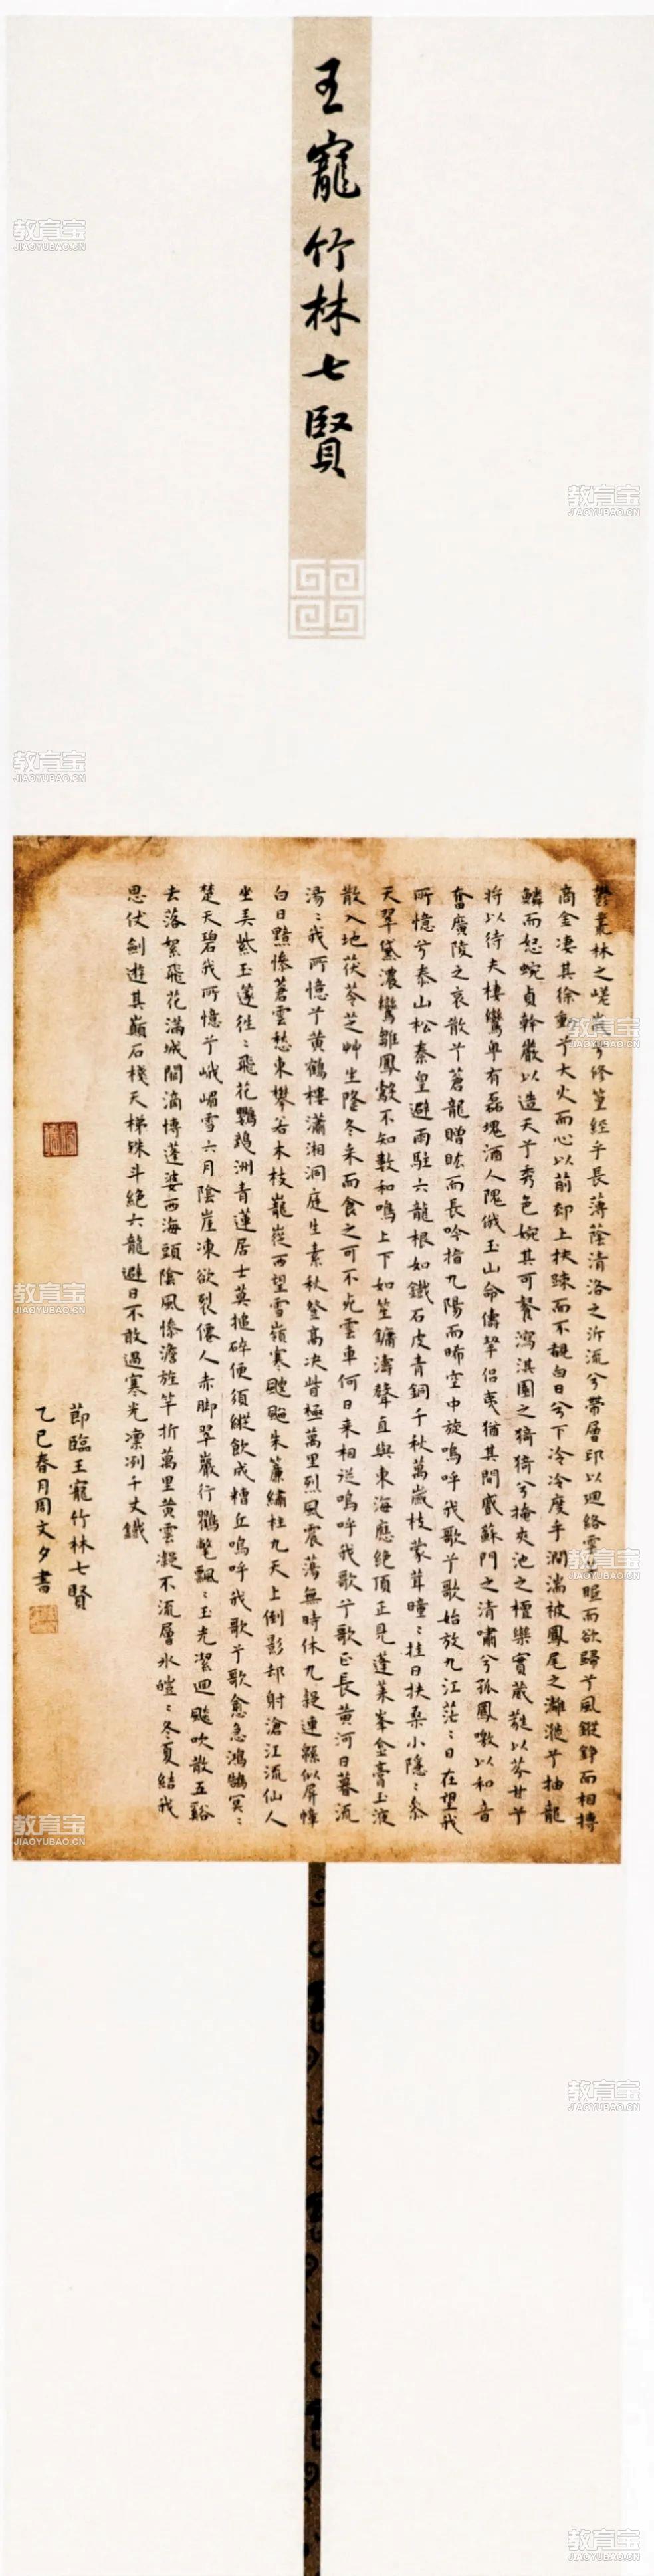 王寵竹林七賢
鬱叢林之嵯峩兮修篁經乎長薄蔭清洛之沂流兮帶層邱以迴絡雲 而欲歸兮風鏦錚而相摶
商金凄其徐動兮大火而心以前却上扶疎而不覩白日兮下泠泠度乎澗湍被鳳尾之灕褷兮抽龍
鱗而怒蜿貞幹嚴以造天兮秀色婉其可餐瀉淇園之猗猗兮掩夾池之檀欒實葳蕤以芬甘兮
將以待夫棲鸞卑有磊塊酒人隗俄玉山命儔挈侶夷猶其間戚蘇門之清嘯兮孤鳳噭以和音
奮廣陵之哀散兮蒼龍贈 而長吟指九陽而晞空中旋嗚呼我歌兮歌始放九江茫茫日在望我
所憶兮泰山松秦皇避雨駐六龍根如鐵石皮青銅千秋萬歲枝蒙茸曈曈挂日扶桑小隱隱參
天翠黛濃鸞雛鳳鷇不知數和鳴上下如笙鏞濤聲直與東海應絕頂正見蓬萊峯金膏玉液
散入地茯苓芝艸生隆冬采而食之可不死雲車何日來相從嗚呼我歌兮歌正長黃河日暮流
湯湯我所憶兮黃鶴樓瀟湘洞庭生素秋登高决眥極萬里烈風震蕩無時休九疑連緜似屏幛
白日黯慘蒼雲愁東攀若木枝巃嵸西望雪嶺寒颼飀朱簾繡柱九天上倒影却射滄江流仙人
坐弄紫玉篴往往飛花鸚鵡洲青蓮居士莫搥碎便須縱飲成糟丘嗚呼我歌兮歌愈急鴻鵠冥冥
楚天碧我所憶兮峨嵋雪六月陰崖凍欲裂僊人赤脚翠巖行鸘氅飄飄玉光潔迴飈吹散五谿
去落絮飛花滿城闕滴博蓬婆西海頭陰風慘澹旌竿折萬里黃雲凝不流層氷皚皚冬夏結我
思仗劍遊其巔石棧天梯殊斗絕六龍避日不敢過寒光凜冽千丈鐵
節臨王寵竹林七賢
乙巳春月周文夕書
教育宝
JIAOYUBAO.CN
教育宝
JIAOYUBAO.CN
教育宝
JIAOYUBAO.CN
教育宝
JIAOYUBAO.CN
教育宝
JIAOYUBAO.CN
教育宝
JIAOYUBAO.CN
教育宝
JIAOYUBAO.CN
教育宝
JIAOYUBAO.CN
教育宝
JIAOYUBAO.CN